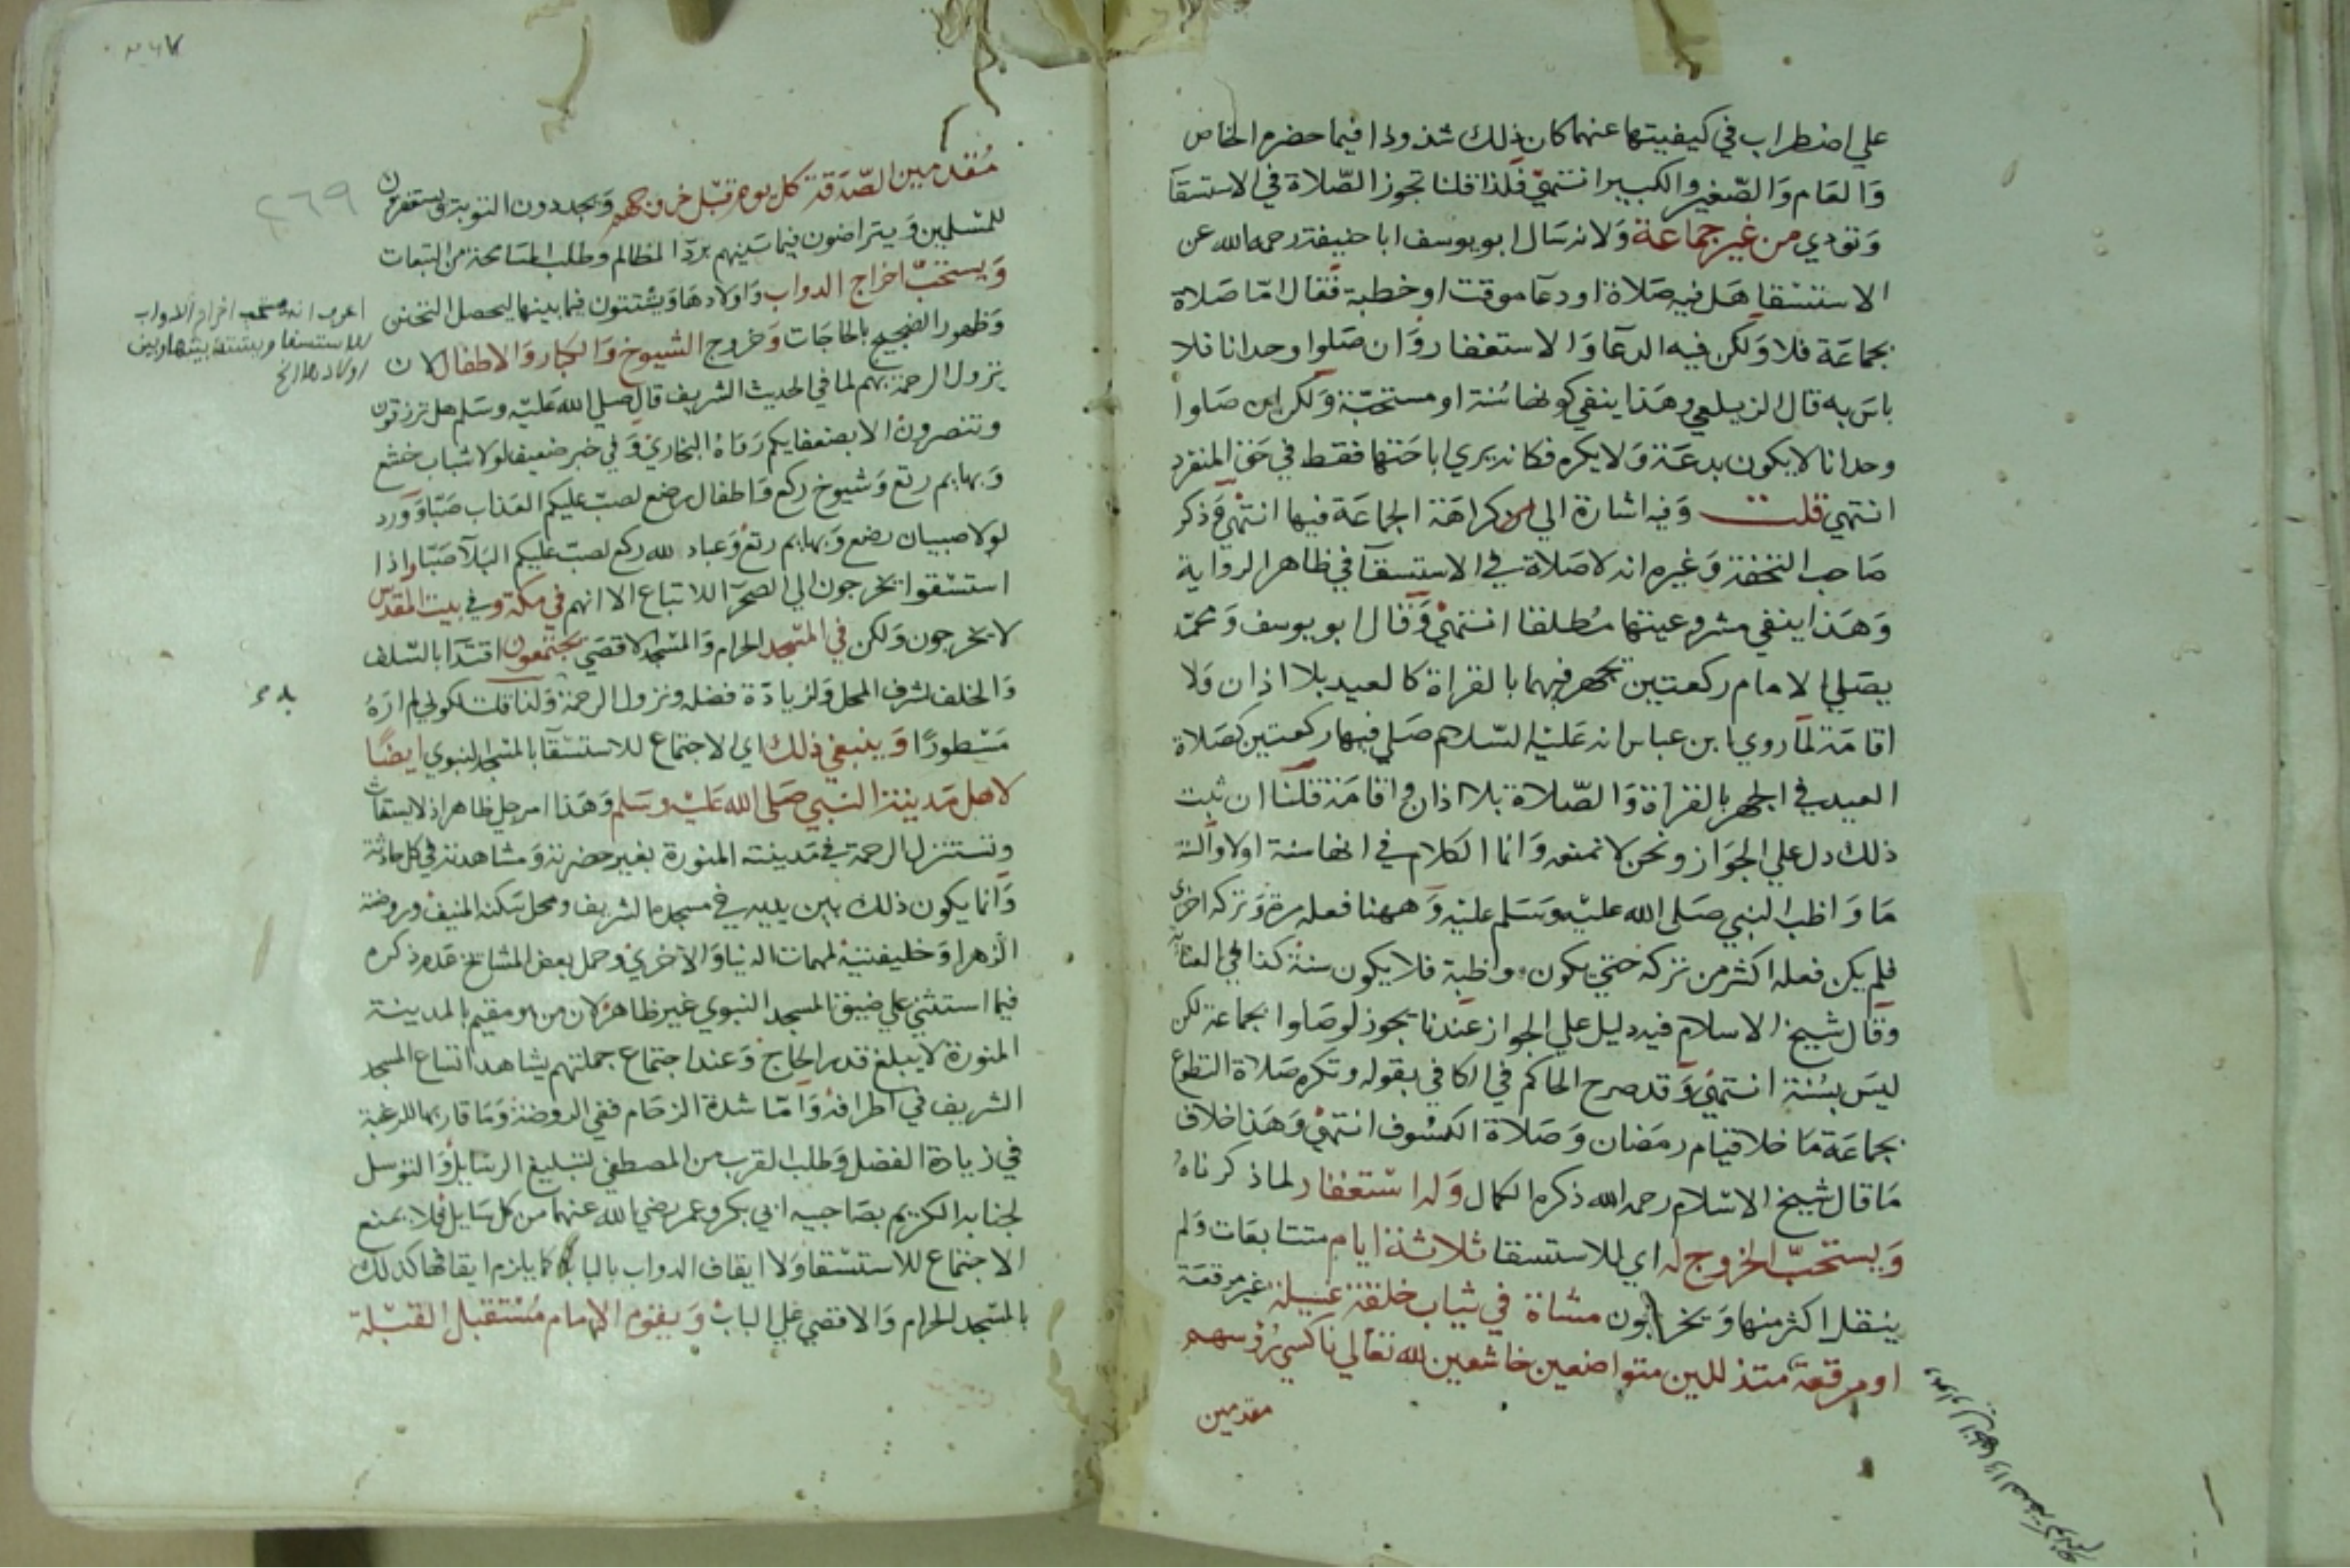 علي اضطراب في كيفيتها عنهما كان ذلك شذوذا فيما حضره الخاص
والعام والصغير والكبير انتهي فلذا قلنا تجوز الصلاة في الاستسقا
وتؤدي من غير جماعة ولانه سال ابو يوسف ابا حنيفة رحمه الله عن
الاستسقا هل فيه صلاة او دعا موقت او خطبة فقال اما صلاة
بجماعة فلا ولكن فيه الدعا والاستغفار وان صلوا وحدانا فلا
باس به قال الزيلعي وهذا ينفي كونها سنة او مستحبة ولكن ان صلوا
وحدانا لا يكون بدعة ولا يكره فكانه يري اباحتها فقط في حق المنفرد
انتهي قلت وفيه اشارة الي كراهة الجماعة فيها انتهي وذكر
صاحب التحفة وغيره انه لا صلاة في الاستسقآ في ظاهر الرواية
وهذا ينفي مشروعيتها مطلقا انتهي وقال ابو يوسف ومحمد
يصلي الامام ركعتين يجهر فيهما بالقراة كالعيد بلا اذان ولا
اقامة لما روي ابن عباس انه عليه السلام صلي فيها ركعتين كصلاة
العيد في الجهر بالقراة والصلاة بلا اذان واقامة قلنا ان ثبت
ذلك دل علي الجواز ونحن لا نمنعه وانما الكلام في انها سنة اولا والسنة
ما واظب النبي صلى الله عليه وسلم عليه وههنا فعله مرة وتركه اخري
فلم يكن فعله اكثر من تركه حتي يكون مواظبة فلا يكون سنة كذا في العناية
وقال شيخ الاسلام فيه دليل علي الجواز عندنا يجوز لو صلوا بجماعة لكن
ليس بسنة انتهي وقد صرح الحاكم في الكافي بقوله وتكره صلاة التطوع
بجماعة ما خلا قيام رمضان وصلاة الكسوف انتهي وهذا خلاف
ما قال شيخ الاسلام رحمه الله ذكره الكمال وله استغفار لما ذكرناه
ويستحب الخروج له اي للاستسقا ثلاثة ايام متتابعات ولم
ينقل اكثر منها ويخرجون مشاة في ثياب خلقة غسيلة غير مرقعة
او مرقعة متذللين متواضعين خاشعين لله تعالي ناكسي رؤسهم
مقدمين
مقدمين الصدقة كل يوم قبل خروجهم ويجددون التوبة ويستغفرون
للمسلمين ويتراضون فيما بينهم برد المظالم وطلب المسامحة من التبعات
ويستحب اخراج الدواب واولادها ويشتتون فيما بينها ليحصل التحنن
وظهور الضجيج بالحاجات وخروج الشيوخ والكبار والاطفال لان
نزول الرحمة بهم لما في الحديث الشريف قال صلي الله عليه وسلم هل ترزقون
وتنصرون الا بضعفايكم رواه البخاري وفي خبر ضعيف لولا شباب خشع
وبهايم رتع وشيوخ ركع واطفال رضع لصب عليكم العذاب صبا وورد
لولا صبيان رضع وبهايم رتع وعباد لله ركع لصب عليكم البلآ صبا واذا
استسقوا يخرجون الي الصحرآ للاتباع الا انهم في مكة وفي بيت المقدس
لا يخرجون ولكن في المسجد الحرام والمسجد الاقصي يجتمعون اقتدا بالسلف
والخلف لشرف المحل ولزيادة فضله ونزول الرحمة ولنا قلت لكوني لم اره
مسطورا وينبغي ذلك اي الاجتماع للاستسقآ بالمسجد النبوي ايضا
لاهل مدينة النبي صلى الله عليه وسلم وهذا امر جلي ظاهر اذ لا يستغاث
وتستنزل الرحمة في مدينته المنورة بغير حضرته ومشاهدته في كل حادثة
وانما يكون ذلك بين يديه في مسجده الشريف ومحل سكنه المنيف وروضة
الزهرا وخليفتيه لمهمات الدنيا والاخري وحمل بعض المشايخ عدم ذكره
فيما استثني علي ضيق المسجد النبوي غير ظاهر لان من هو مقيم بالمدينة
المنورة لا يبلغ قدر الحاج وعند اجتماع جملتهم يشاهد اتساع المسجد
الشريف في اطرافه واما شدة الزحام ففي الروضة وما قاربها للرغبة
في زيادة الفضل وطلب القرب من المصطفي لتبليغ الرسايل والتوسل
لجنابه الكريم بصاحبيه ابي بكر وعمر رضي الله عنهما من كل سايل فلا يمنع
الاجتماع للاستسقا ولا ايقاف الدواب بالباب كما يلزم ايقافها كذلك
بالمسجد الحرام والاقصي علي الباب ويقوم الامام مستقبل القبلة
٢٦٩
اعرف انه يستحب اخراج الدواب
للاستسقا ويشتت بينها وبين
اولادها الخ